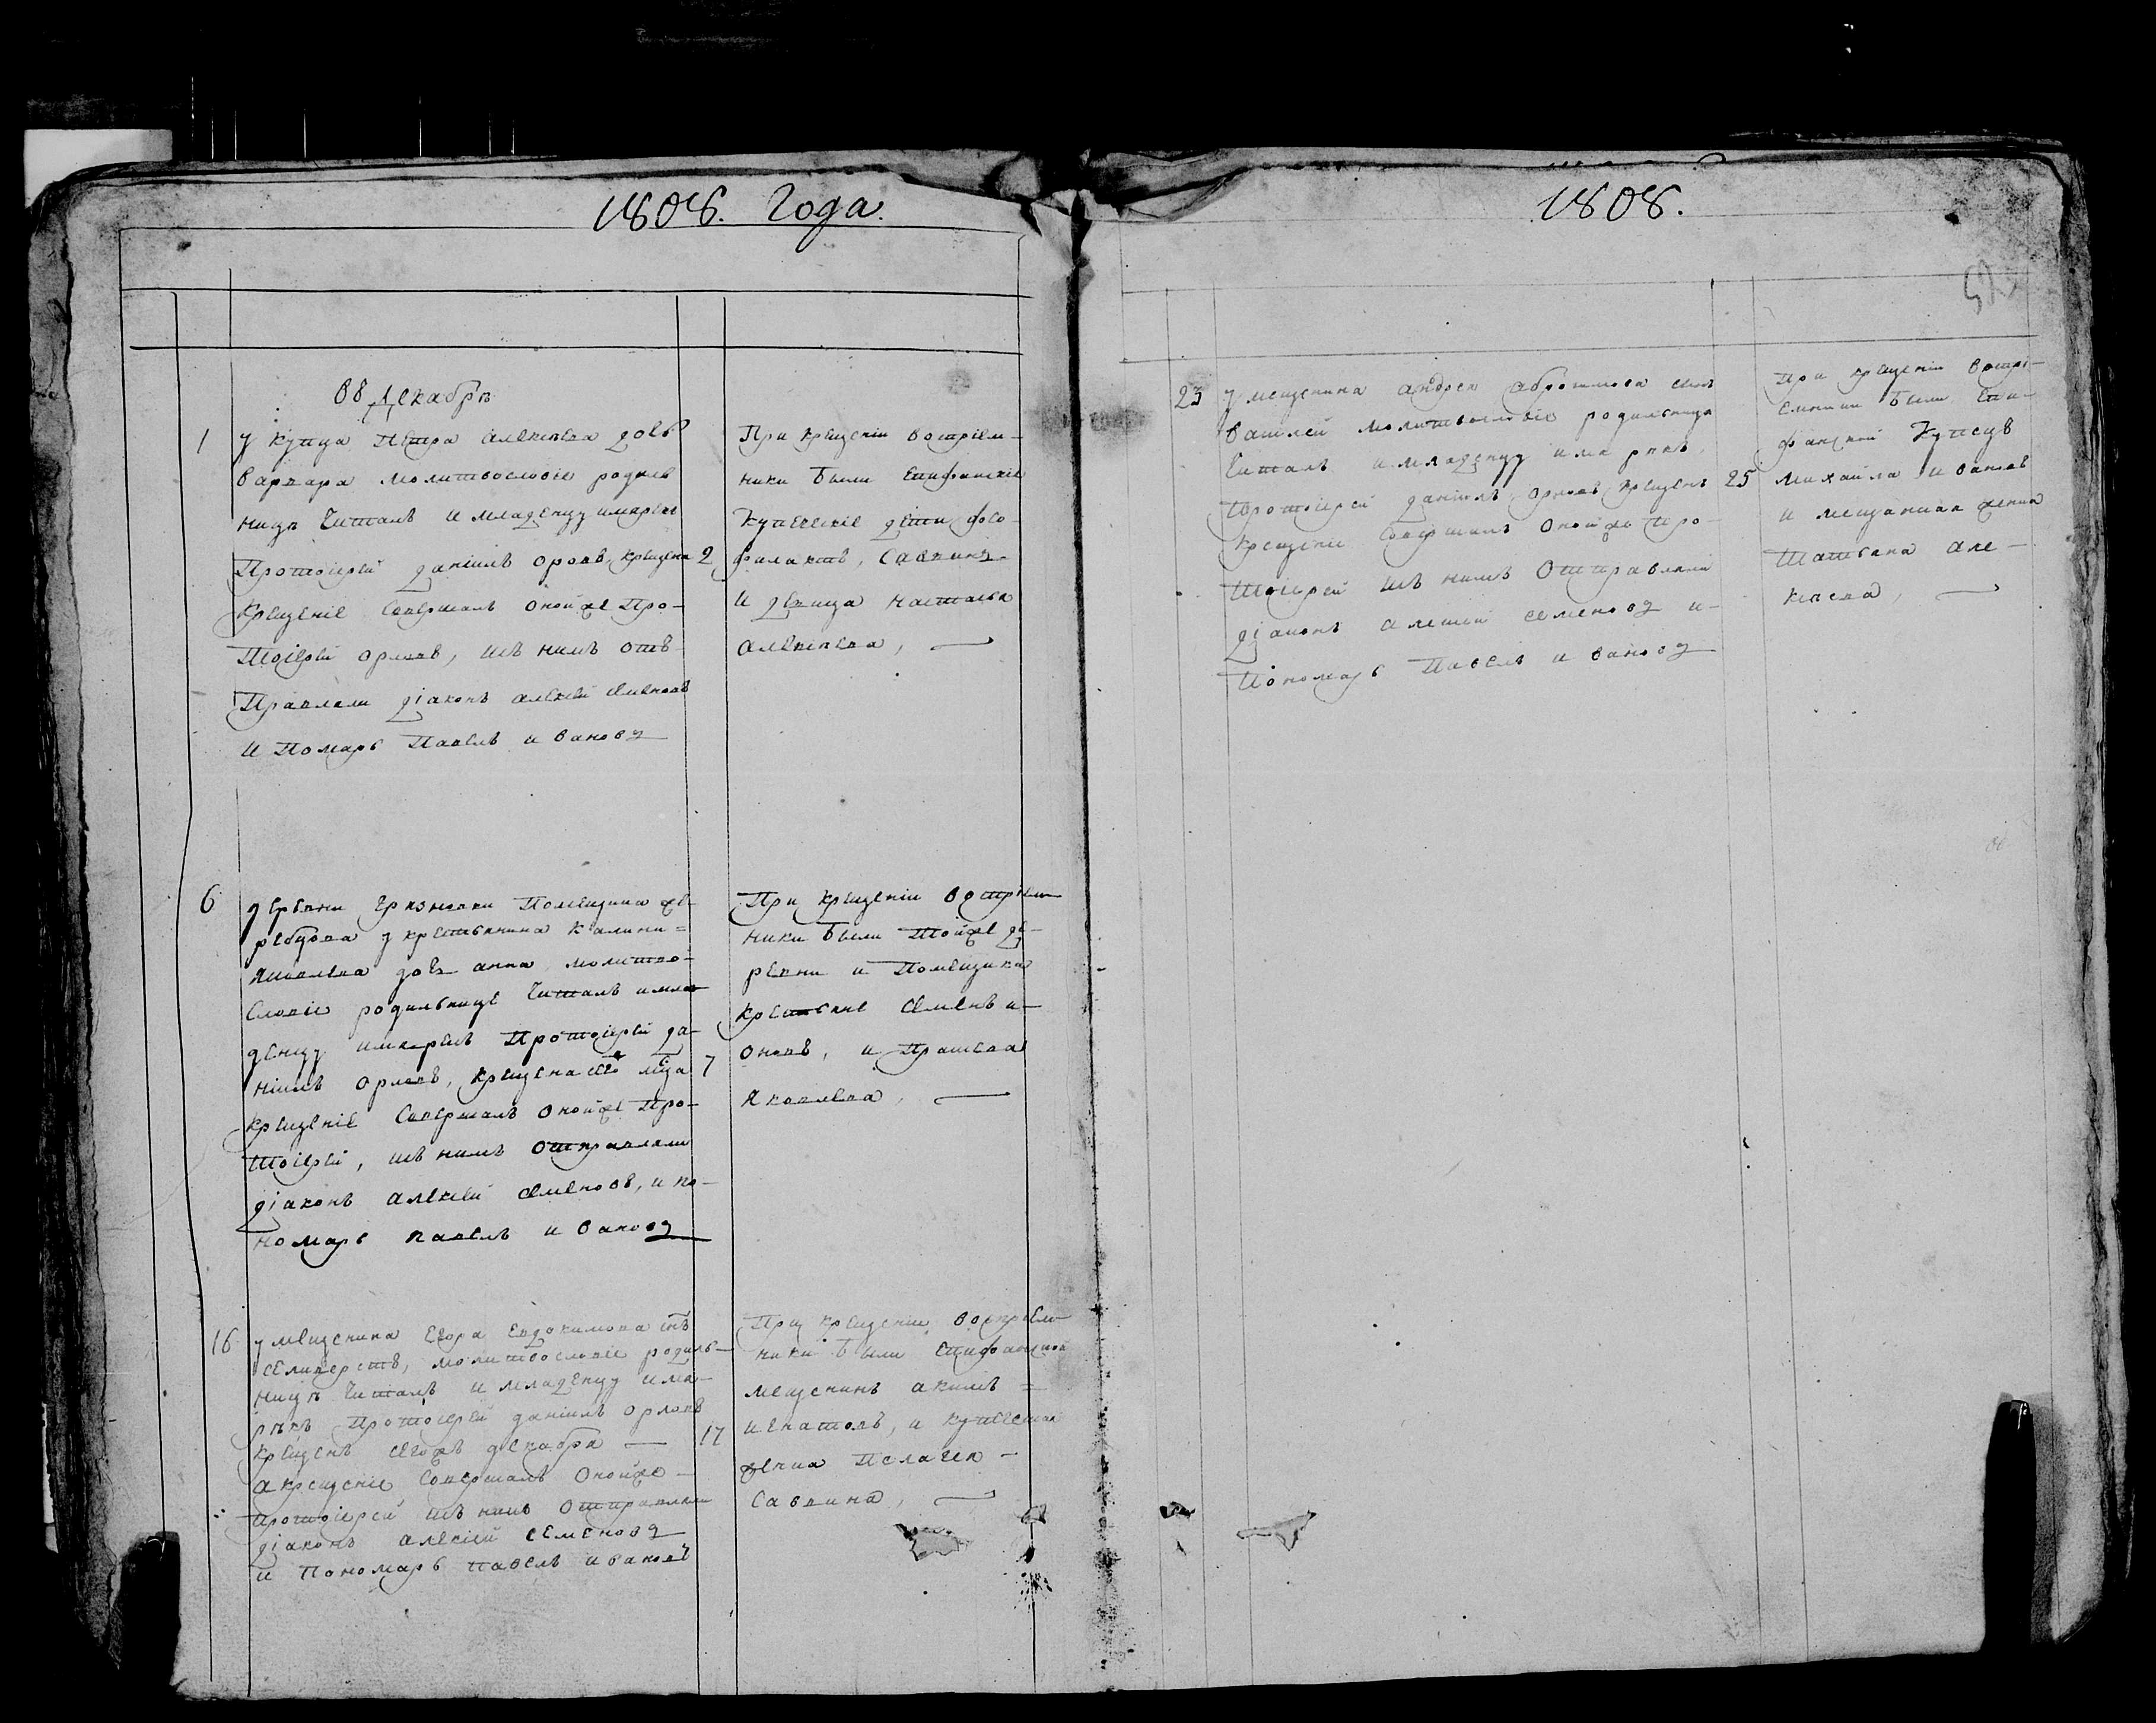 1808. Года.
въ Декабрѣ
1 У купца Петра Алексѣева дочь
Варвара молитвословіе родиль
ницѣ читалъ и младенцу имя рекъ
Протоіерей Даніилъ Орловъ, крещена 2
крещеніе совершалъ оной же Про-
тоіерей Орловъ, съ нимъ отъ
правляли діаконъ Алексѣй Семеновъ
и помарь Павелъ Ивановъ
При крещеніи воспріем-
ники были Епифанскіе
купеческіе дѣти Фео-
филактъ, Саввинъ
и дѣвица Наталья
Алексѣева,
6 деревни помещика
у крестьянина Калины =
Яковлева дочь Анна, молитво-
словіе родильницѣ читалъ и мла
денцу имя рекъ Протоіерей Да-
ніилъ Орловъ, крещена сего мца 7
крещеніе совершалъ оной же Про-
тоіерей, съ нимъ отправляли
діаконъ Алексѣй Семеновъ, и по-
номарь Павелъ Ивановъ
При крещеніи воспріем
ники были той же де-
ревни и помещика
крестьяне Семенъ И-
оновъ, и
Яковлева,
16 у мещенина Егора Евдокимова снъ
Селиверстъ, молитвословіе родиль-
ницѣ читалъ и младенцу имя-
рѣкъ Протоіерей Даніилъ Орловъ
крещенъ сегожъ декабря — 17
а крещеніе совершалъ оной же —
протоіерей съ нимъ отправляли
діаконъ Алексѣй Семеновъ
и пономарь Павелъ Ивановъ
При крещеніи воспріем
ники были Епифанской
мещенинъ Акимъ =
Игнатовъ, и купеческая
женка Пелагея —
Саввина,
1808.
23 У мещенина Андрея Абросимова сынъ
Василей молитвословіе родильнице
читалъ и младенцу имя рекъ
Протоіерей Даніилъ Орловъ, крещенъ 25
крещеніе совершалъ оной же Про-
тоіерей съ нимъ отправляли
діаконъ Алексей Семеновъ и-
пономарь Павелъ Ивановъ
При крещеніи воспрі-
емники были Епи-
фанской купецъ
Михайла Ивановъ
и мещанская женка
Татьяна Але-
ксеева,